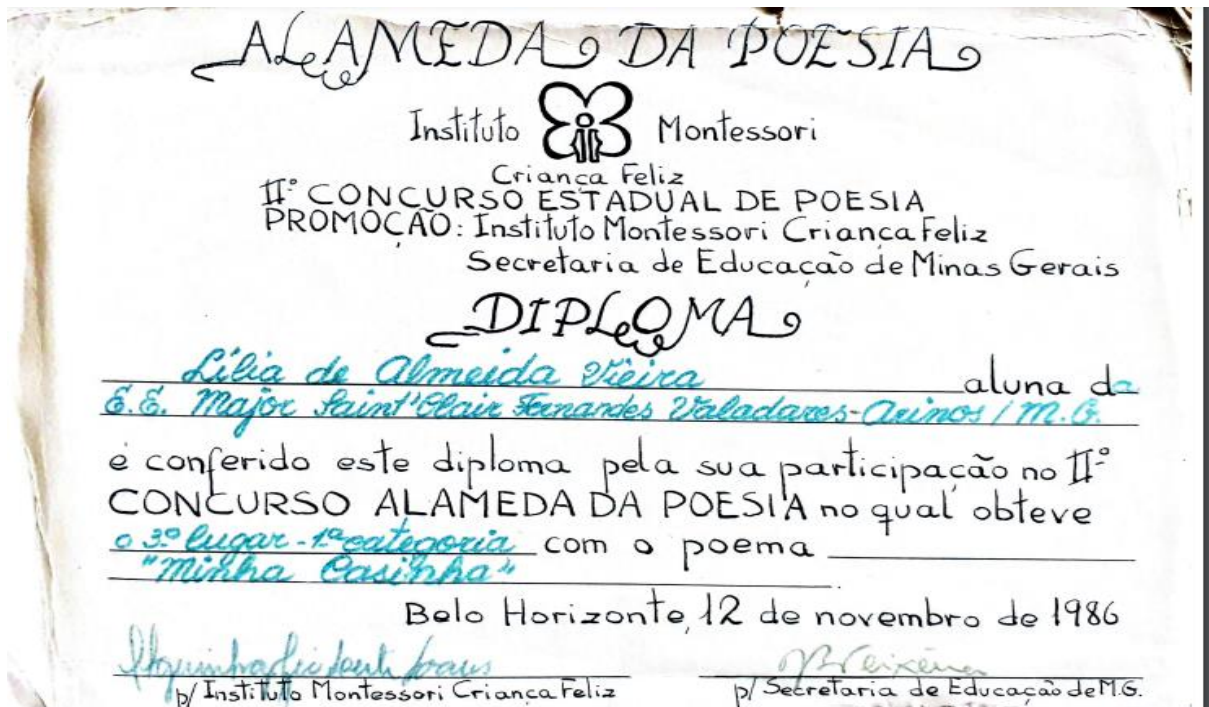 ALAMEDA DA POESIA
Instituto Montessori
Criança Feliz
IIº CONCURSO ESTADUAL DE POESIA
PROMOÇÃO: Instituto Montessori Criança Feliz
Secretaria de Educação de Minas Gerais
DIPLOMA
Lília de Almeida Vieira aluna da
E.E. Major Saint'Clair Fernandes Valadares-Arinos / M.G.
é conferido este diploma pela sua participação no IIº
CONCURSO ALAMEDA DA POESIA no qual obteve
o 3º lugar - 1ª categoria com o poema
"Minha Casinha".
Belo Horizonte, 12 de novembro de 1986
p/ Instituto Montessori Criança Feliz p/ Secretaria de Educação de M.G.